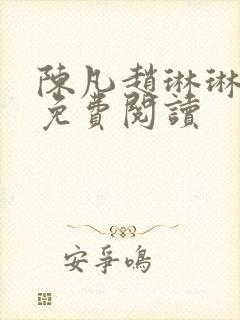 陳凡趙琳琳
免費閱讀
安爭鳴